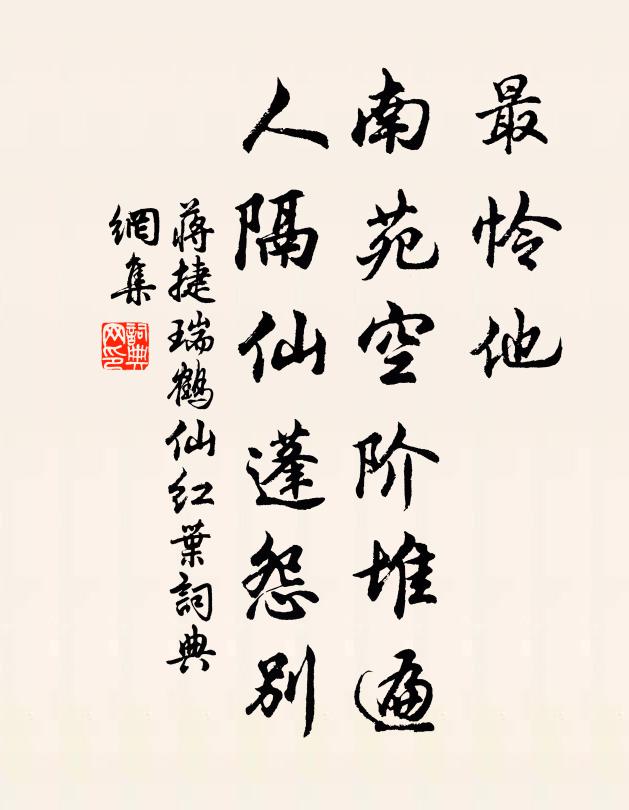 最怜他
南苑空阶堆遍
人隔仙蓬怨别
蒋捷瑞鶴仙红葉詞典
網集
詞典
网印